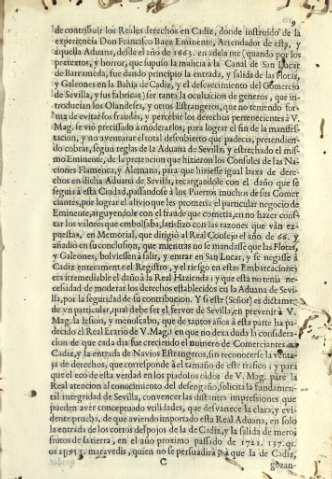 de contribuir los Reales derechos en Cadiz, donde instruido de la
experiencia Don Francisco Baez Eminente, Arrendador de esta, y
aquella Aduana, desde el año de 1663. en adelante (quando por los
pretextos, y horror, que supuso la malicia a la Canal de San Lucar
de Barrameda, fue dando principio la entrada, y salida de las Flotas,
y Galeones en la Bahia de Cadiz, y el desfavorecimiento del Comercio
de Sevilla, y sus fabricas) ser tanta la ocultacion de generos, que in-
troducian los Olandeses, y otros Estrangeros, que no teniendo for-
ma de evitar los fraudes, y percibir los derechos pertenecientes à V.
Mag. se viò precisado à moderarlos, para lograr el fin de la manifes-
tacion, y no aventurar el total descubierto que padecia, pretendien-
do cobrar, segun reglas de la Aduana de Sevilla, y estrechado el mis-
mo Eminente, de la pretencion que hizieron los Consules de las Na-
ciones Flamenca, y Alemana, para que hiziesse igual baxa de dere-
chos en dicha Aduana de Sevilla, recargandole con el daño que se
seguia à esta Ciudad, passandose à los Puertos muchos de sus Comer-
ciantes, por lograr el alivio que les prometia el particular negocio de
Eminente, arguyendole con el fraude que cometia, en no hazer cons-
tar los valores que embolsaba, satisfizo con las razones que vàn ex-
puestas, en Memorial, que dirigiò al Real Consejo el año de 66. y
añadiò en su conclusion, que mientras no se mandasse que las Flotas,
y Galeones, bolviessen à salir, y entrar en San Lucar, y se negasse à
Cadiz enteramente el Registro, y el riesgo en estas Embarcaciones
era irremediable el daño à la Real Hazienda; y que esta no tenia ne-
cessidad de moderar los derechos establecidos en la Aduana de Sevi-
lla, por la seguridad de su contribucion. Y si este (Señor) es dictamen
de vn particular, què debe ser el fervor de Sevilla, en prevenir à V.
Mag. la lesion, y menoscabo, que de tantos años à esta parte ha pa-
decido el Real Erario de V. Mag. en que no dexa duda la considera-
cion de que cada dia fue creciendo el numero de Comerciantes en
Cadiz, y la entrada de Navios Estrangeros, sin reconocerse la venta-
ja de derechos, que corresponde al tamaño de este trafico; y para
que el eco de esta verdad en los piadosos oìdos de V. Mag. pare la
Real atencion al conocimiento del desengaño, solicita la fundamen-
tal integridad de Sevilla, convencer las distintas impressiones que
pueden aver conceptuado vtilidades, que desvanece la clara, y evi-
dente prueba, de que aviendo importado esta Real Aduana, en solo
la entrada de los cortos despojos de la de Cadiz, y la salida de meros
frutos de la tierra, en el año proximo passado de 1721.
maravedis, quien no se persuadirà à que la de Cadiz,
C
gozan-